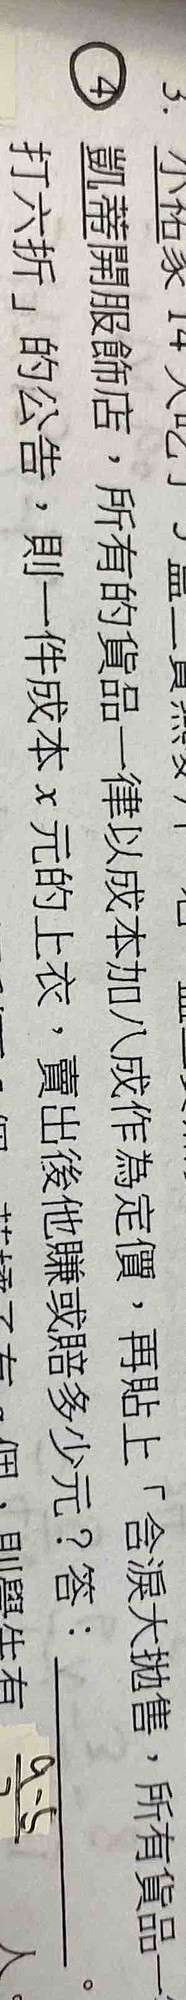 3. 小祐家 14 人吃了
④ 凱蒂開服飾店，所有的貨品一律以成本加八成作為定價，再貼上「含淚大拋售，所有貨品一
打六折」的公告，則一件成本 x 元的上衣，賣出後他賺或賠多少元？答：＿＿＿＿＿＿。
個，則學生有 a-5 人。